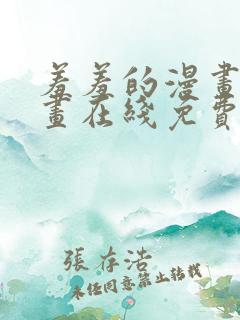 羞羞的漫畫
畫在綫免費
張存浩
未任同意禁止转载